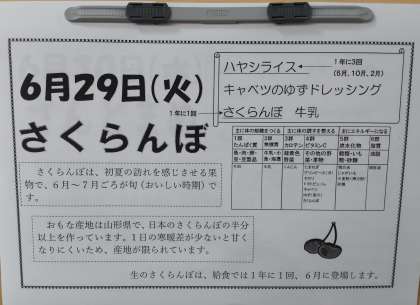 6月29日(火)
さくらんぼ
ハヤシライス
1年に3回
(6月、10月、2月)
キャベツのゆずドレッシング
1年に1回
さくらんぼ 牛乳
主に体の組織をつくる
主に体の調子を整える
主にエネルギーになる
1群
たんぱく質
2群
無機質
3群
カロテン
4群
ビタミンC
5群
炭水化物
6群
脂質
魚・肉・卵・
豆・豆製品
緑黄色
野菜
その他の野
菜・果物
穀類・いも
類・砂糖
油脂
さくらんぼは、初夏の訪れを感じさせる果
物で、6月~7月ごろが旬(おいしい時期)で
す。
おもな産地は山形県で、日本のさくらんぼの半分
以上を作っています。1日の寒暖差が少ないと甘く
なりにくいため、産地が限られています。
生のさくらんぼは、給食では1年に1回、6月に登場します。